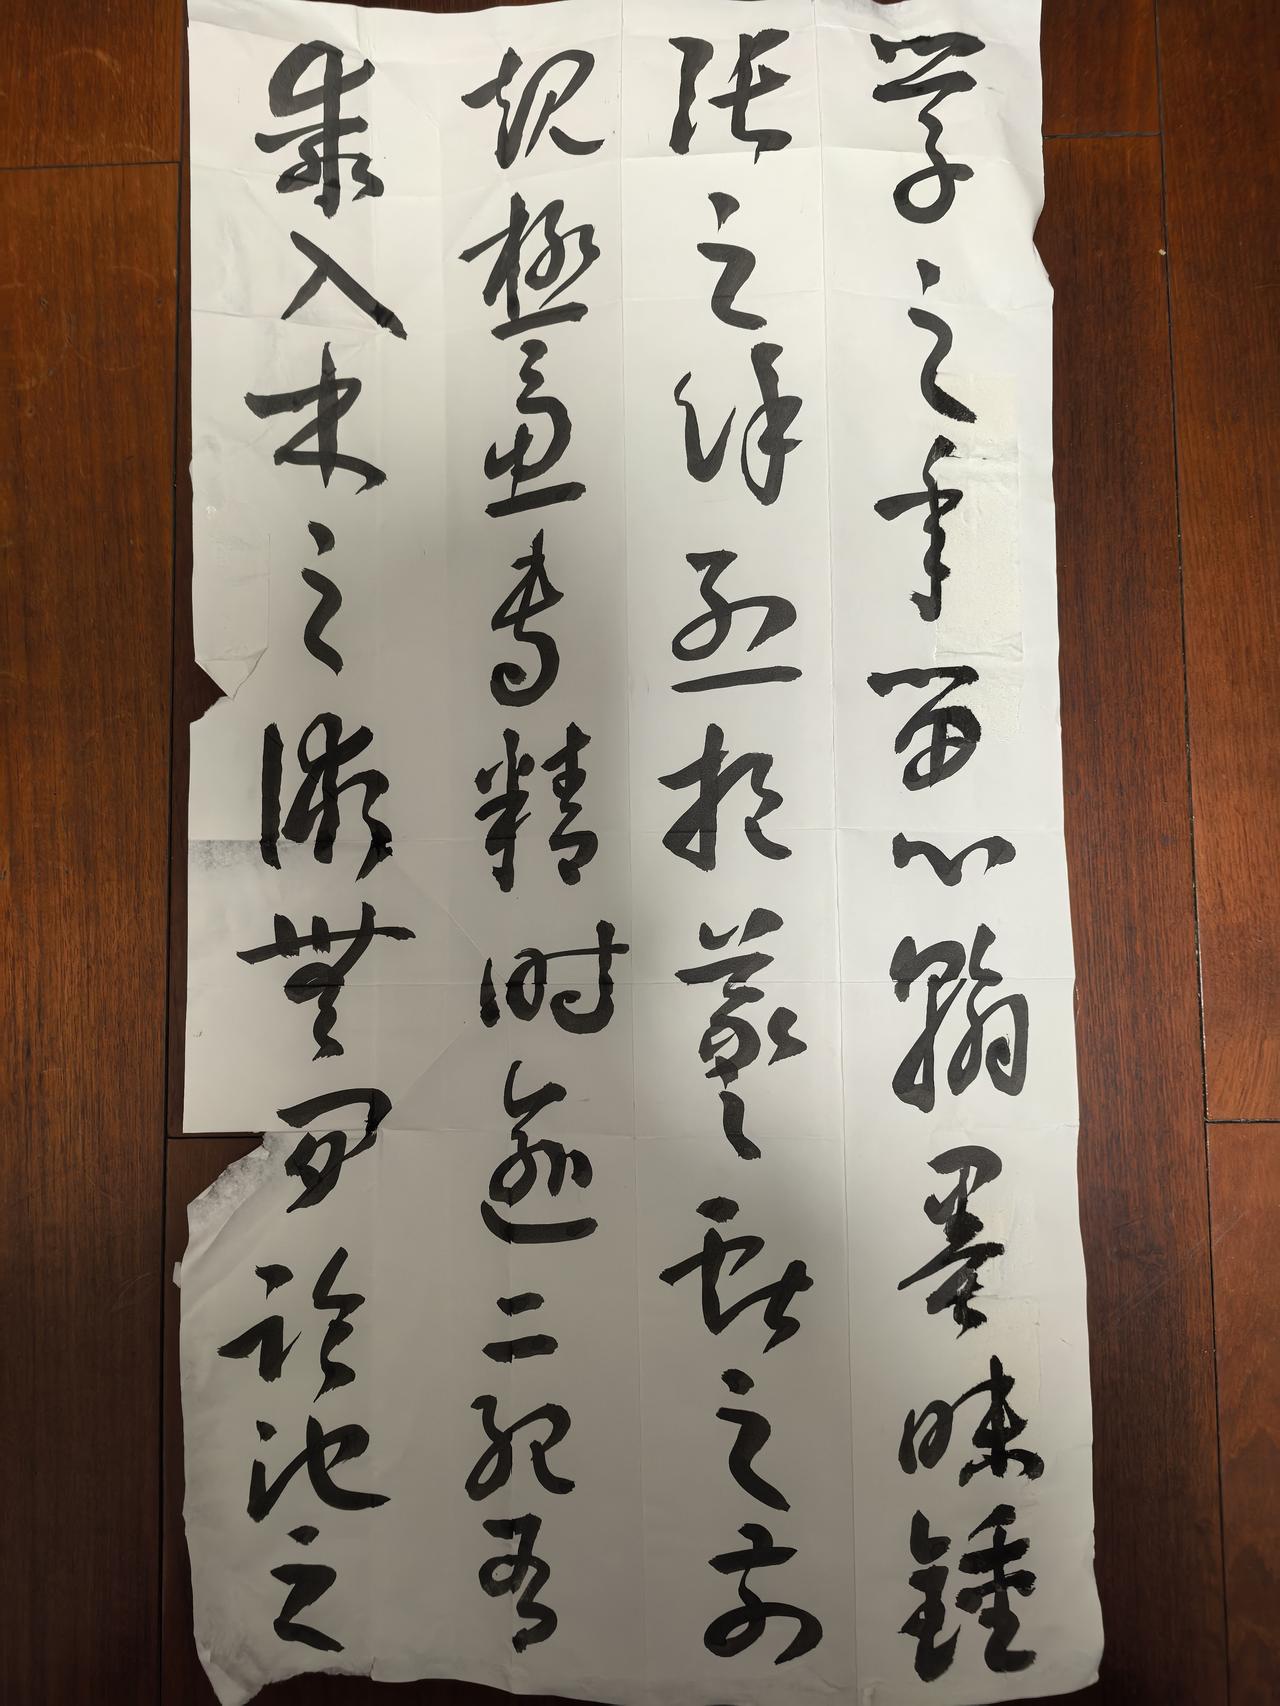 學之年留心翰墨味鍾
張之餘烈挹羲獻之前
規極慮專精時逾二紀有
乖入木之術無間臨池之